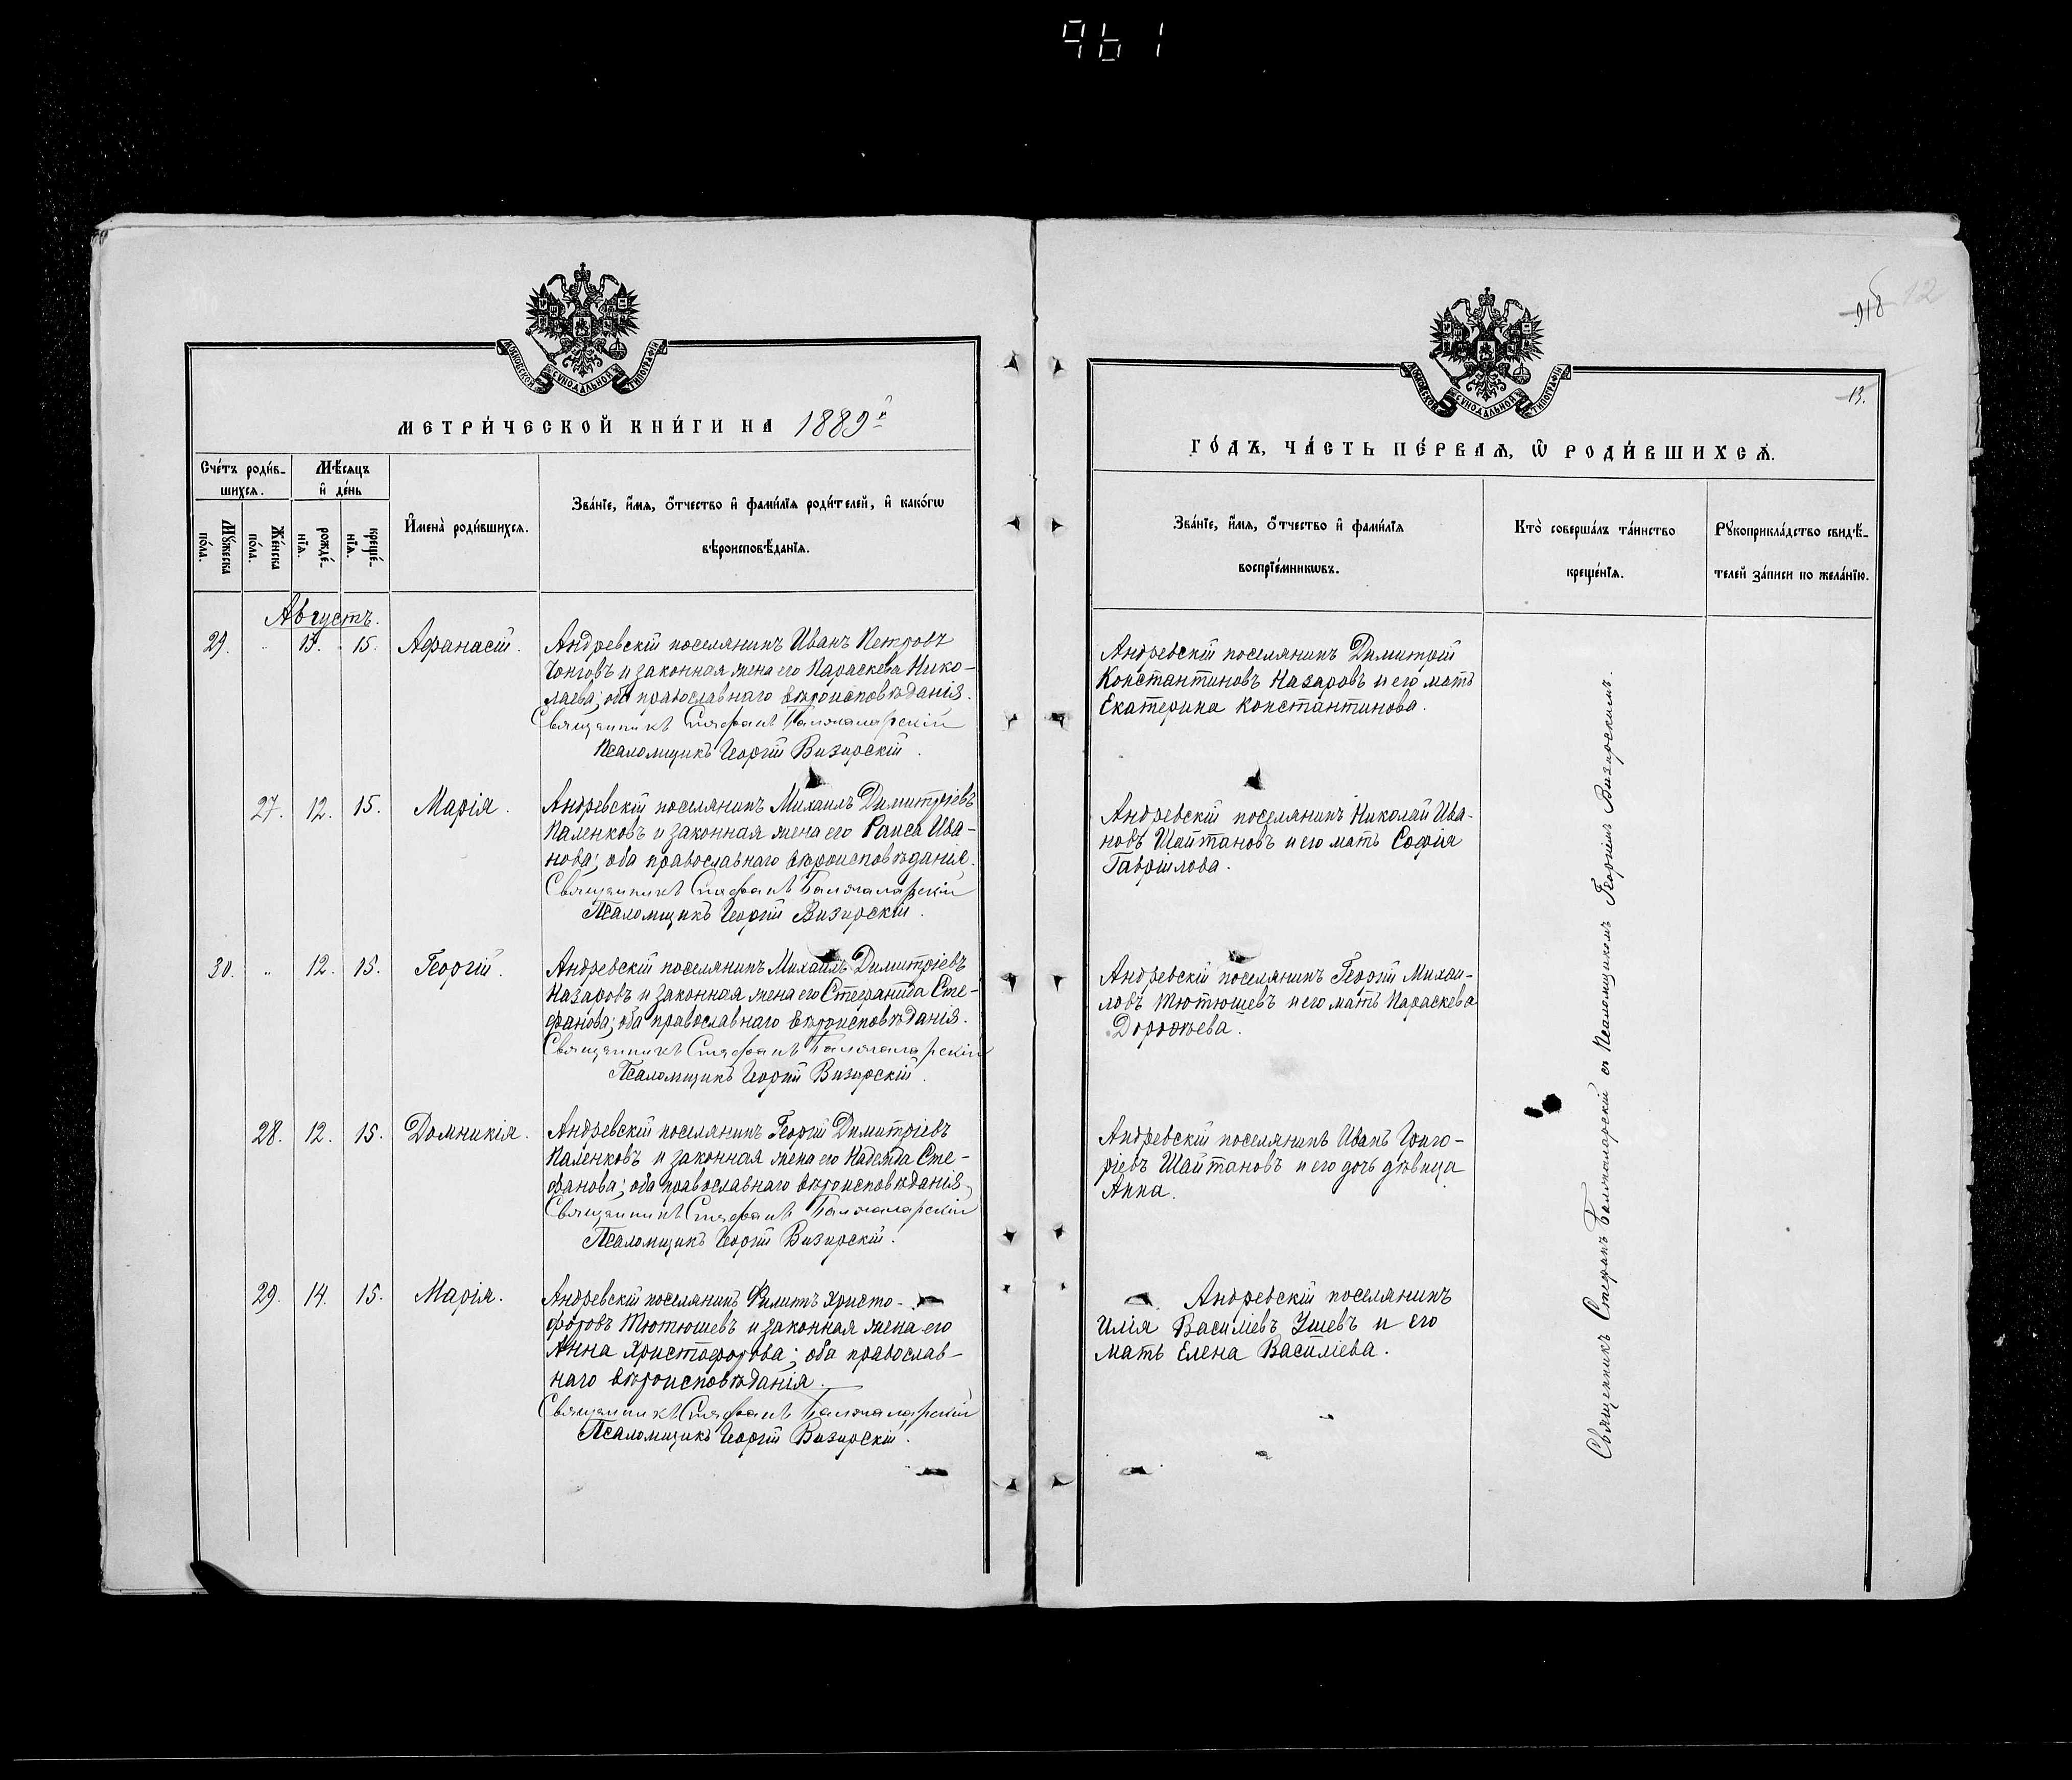 961
12
918
13.
МОСКОВСКОЙ СУНОДАЛЬНОЙ ТИПОГРАФІИ
МЕТРИ́ЧЕСКОЙ КНИ́ГИ НА 1889й
Сче́тъ роди́в-
шихсѧ.
Мѣ́сѧцъ
и҆ де́нь
И҆мена̀ роди́вшихсѧ.
Зва́нїе, и҆́мѧ, ѻ҆́тчество и҆ фами́лїѧ роди́телей, и҆ како́гѡ
вѣроисповѣ́данїѧ.
Мꙋ́жеска
по́ла.
Же́нска
по́ла.
рожде́-
нїѧ.
креще́-
нїѧ.
Августъ.
29. " 13. 15. Афанасій.
Андревскій поселянинъ Иванъ Петровъ
Чонговъ и законная жена его Параскева Нико-
лаева; оба православнаго вѣроисповѣданія.
Священникъ Стефанъ Балжаларскій
Псаломщикъ Георгій Визирскій.
27. 12. 15. Марія.
Андревскій поселянинъ Михаилъ Димитріевъ
Паленковъ и законная жена его Раиса Ива-
нова; оба православнаго вѣроисповѣданія.
Священникъ Стефанъ Балжаларскій
Псаломщикъ Георгій Визирскій.
30. " 12. 15. Георгій.
Андревскій поселянинъ Михаилъ Димитріевъ
Назаровъ и законная жена его Стефанида Сте-
фанова; оба православнаго вѣроисповѣданія.
Священникъ Стефанъ Балжаларскій
Псаломщикъ Георгій Визирскій.
28. 12. 15. Домникія.
Андревскій поселянинъ Георгій Димитріевъ
Паленковъ и законная жена его Надежда Сте-
фанова; оба православнаго вѣроисповѣданія.
Священникъ Стефанъ Балжаларскій
Псаломщикъ Георгій Визирскій.
29. 14. 15. Марія.
Андревскій поселянинъ Филипъ Христо-
форовъ Тютюшевъ и законная жена его
Анна Христофорова; оба православ-
наго вѣроисповѣданія.
Священникъ Стефанъ Балжаларскій
Псаломщикъ Георгій Визирскій.
МОСКОВСКОЙ СУНОДАЛЬНОЙ ТИПОГРАФІИ
ГО́ДЪ, ЧА́СТЬ ПЕ́РВАѦ, Ѽ РОДИ́ВШИХСѦ.
Зва́нїе, и҆́мѧ, ѻ҆́тчество и҆ фами́лїѧ
воспрїе́мникѡвъ.
Кто̀ соверша́лъ та́инство
креще́нїѧ.
Рꙋкоприкла́дство свидѣ́-
телей за́писи по жела́нїю.
Андревскій поселянинъ Димитрій
Константиновъ Назаровъ и его мать
Екатерина Константинова.
Андревскій поселянинъ Николай Ива-
новъ Шайтановъ и его мать Софія
Гаврилова.
Андревскій поселянинъ Георгій Михаи-
ловъ Тютюшевъ и его мать Параскева
Дорофеева.
Андревскій поселянинъ Иванъ Григо-
ріевъ Шайтановъ и его дочь дѣвица
Анна.
Андревскій поселянинъ
Илія Василіевъ Ушевъ и его
мать Елена Василіева.
Священникъ Стефанъ Балжаларскій съ Псаломщикомъ Георгіемъ Визирскимъ.